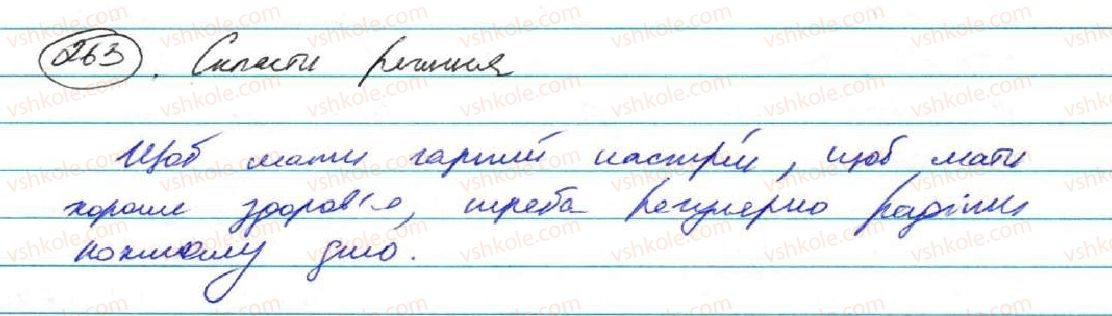 263. Скласти речення
Щоб мати гарний настрій, щоб мати
хороше здоров'я, треба регулярно радіти
кожному дню.
vshkole.com